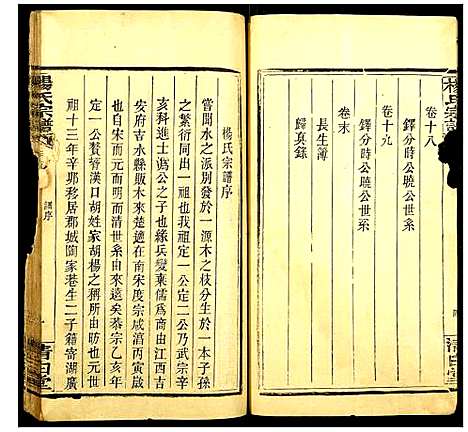 楊氏宗譜
卷十八
鐸分時公曉公世系
卷十九
鐸分時公曉公世系
卷末
長生簿
歸真錄
清白堂
楊氏宗譜序
嘗聞水之派別發於一源木之枝分生於一本子孫
之繁衍同出一祖也我祖定一公定二公乃武宗辛
亥科進士為公之子也緣兵變棄儒為商由江西吉
安府吉水縣販木來楚適在南宋度宗咸淳丙子年
也由宋而元而明而清世系由來遠矣恭宗乙亥年
定一公贅漢口胡姓家胡楊之稱所由出也定二公
祖十三年辛卯移居郡城闵家巷生二子籍寄湖廣
楊氏宗譜
譜序
清白堂